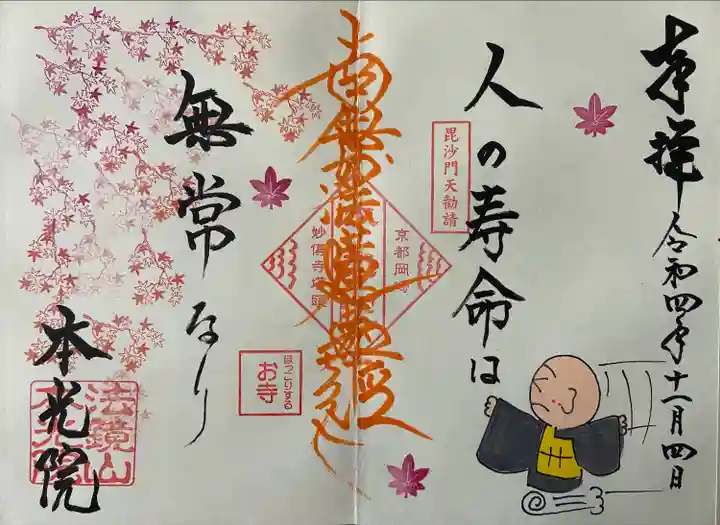 奉拝 令和四年十一月四日
人の寿命は
毘沙門天勧請
京都岡
南無妙法蓮華経
妙傳寺塔頭
無常なり
ほっこりする
お寺
本光院
法鏡山